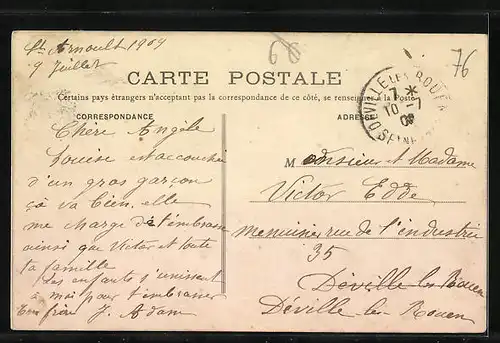 St Arnoult 1909
9 Juillet
60
76
CARTE POSTALE
Certains pays étrangers n'acceptant pas la correspondance de ce côté, se renseigner à la Poste
CORRESPONDANCE
ADRESSE
DEVILLE LES ROUEN
7 *
10 - 7
09
SEINE
Chère Angèle
Louise est accouchée
d'un gros garçon
ça va bien, elle
me charge de t'embrasser
ainsi que Victor et toute
ta famille
les enfants s'unissent
à moi pour t'embrasser
Ton frère J. Adam
Monsieur et Madame
Victor Edde
Menuisier rue de l'industrie
35
Déville les Rouen
Déville-les-Rouen